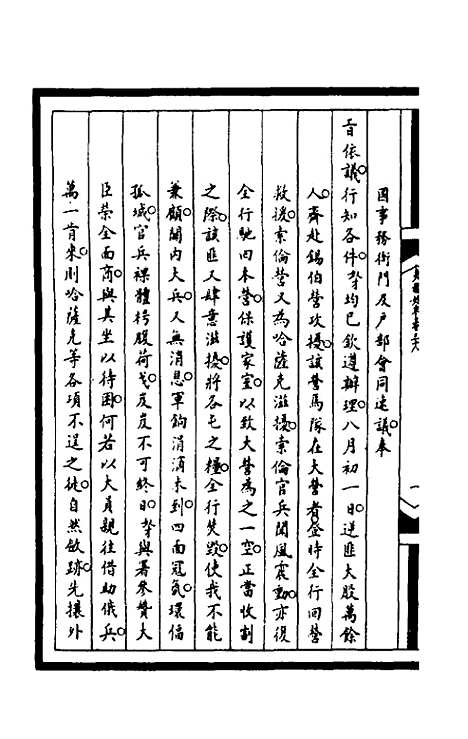 國事務衙門及戶部會同速議奉
旨依議行知各件欽遵辦理八月初一日逆匪大股萬餘
人齊赴錫伯營攻擾該營馬隊在大營者登時全行回營
救援索倫營又為哈薩克滋擾索倫官兵聞風震動亦復
全行馳回本營保護家室以致大營為之一空正當收割
之際該匪又肆意滋擾將各屯之糧全行焚毀使我不能
兼顧關內大兵又無消息軍餉涓滴未到四面寇氛環偪
孤城官兵裸體枵腹荷戈岌岌不可終日與署參贊大
臣榮全面商與其坐以待困何若以大員親往借助俄兵
萬一肯來則哈薩克等各項不逞之徒自然斂跡先攘外